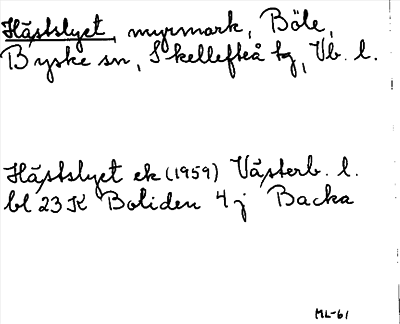 Hästslyet, myrmark, Böle,
Byske sn, Skellefteå tg, Vb. l.
Hästslyet ek (1959) Västerb. l.
bl 23 K Boliden 4 j Backa
ML-61